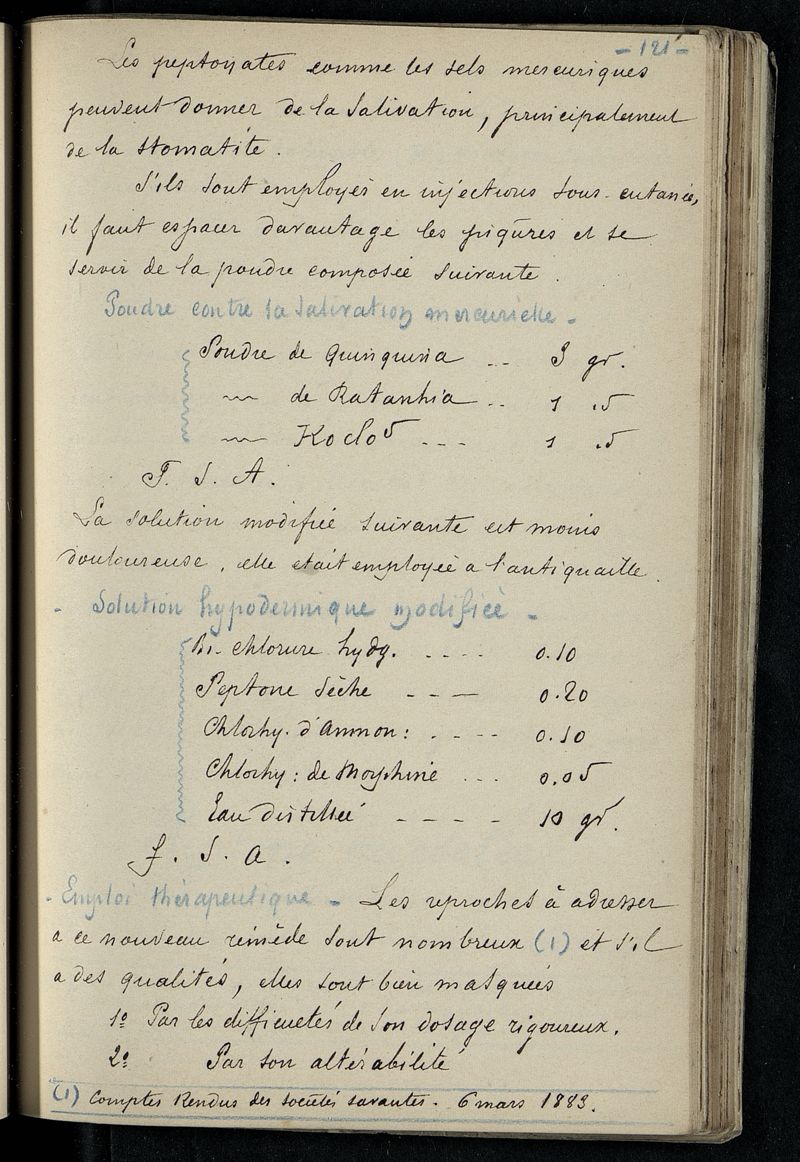 - 121 -
Les peptonates comme les sels mercuriques
peuvent donner de la Salivation, principalement
de la stomatite.
S'ils sont employés en injections sous-cutanées,
il faut espacer davantage les piqûres et se
servir de la poudre composée suivante.
Poudre contre la Salivation mercurielle -
Poudre de Quinquina .. 3 gr.
〃 de Ratanhia .. 1 .5
〃 KoClo5 --- 1 .5
F. S. A.
La solution modifiée suivante est moins
douloureuse, elle était employée a l'antiquaille.
- Solution hypodermique modifiée -
Bi-chlorure hydg. .... 0.10
Peptone Sèche --- 0.20
Chlorhy. d'Ammon: .... 0.10
Chlorhy: de Morphine ... 0.05
Eau distillée ---- 10 gr.
f. S. a.
- Emploi thérapeutique - Les reproches à adresser
a ce nouveau remède sont nombreux (1) et s'il
a des qualités, elles sont bien masquées
1º Par les difficultés de Son dosage rigoureux.
2º Par son altérabilité
(1) Comptes Rendus des sociétés savantes. 6 mars 1883.